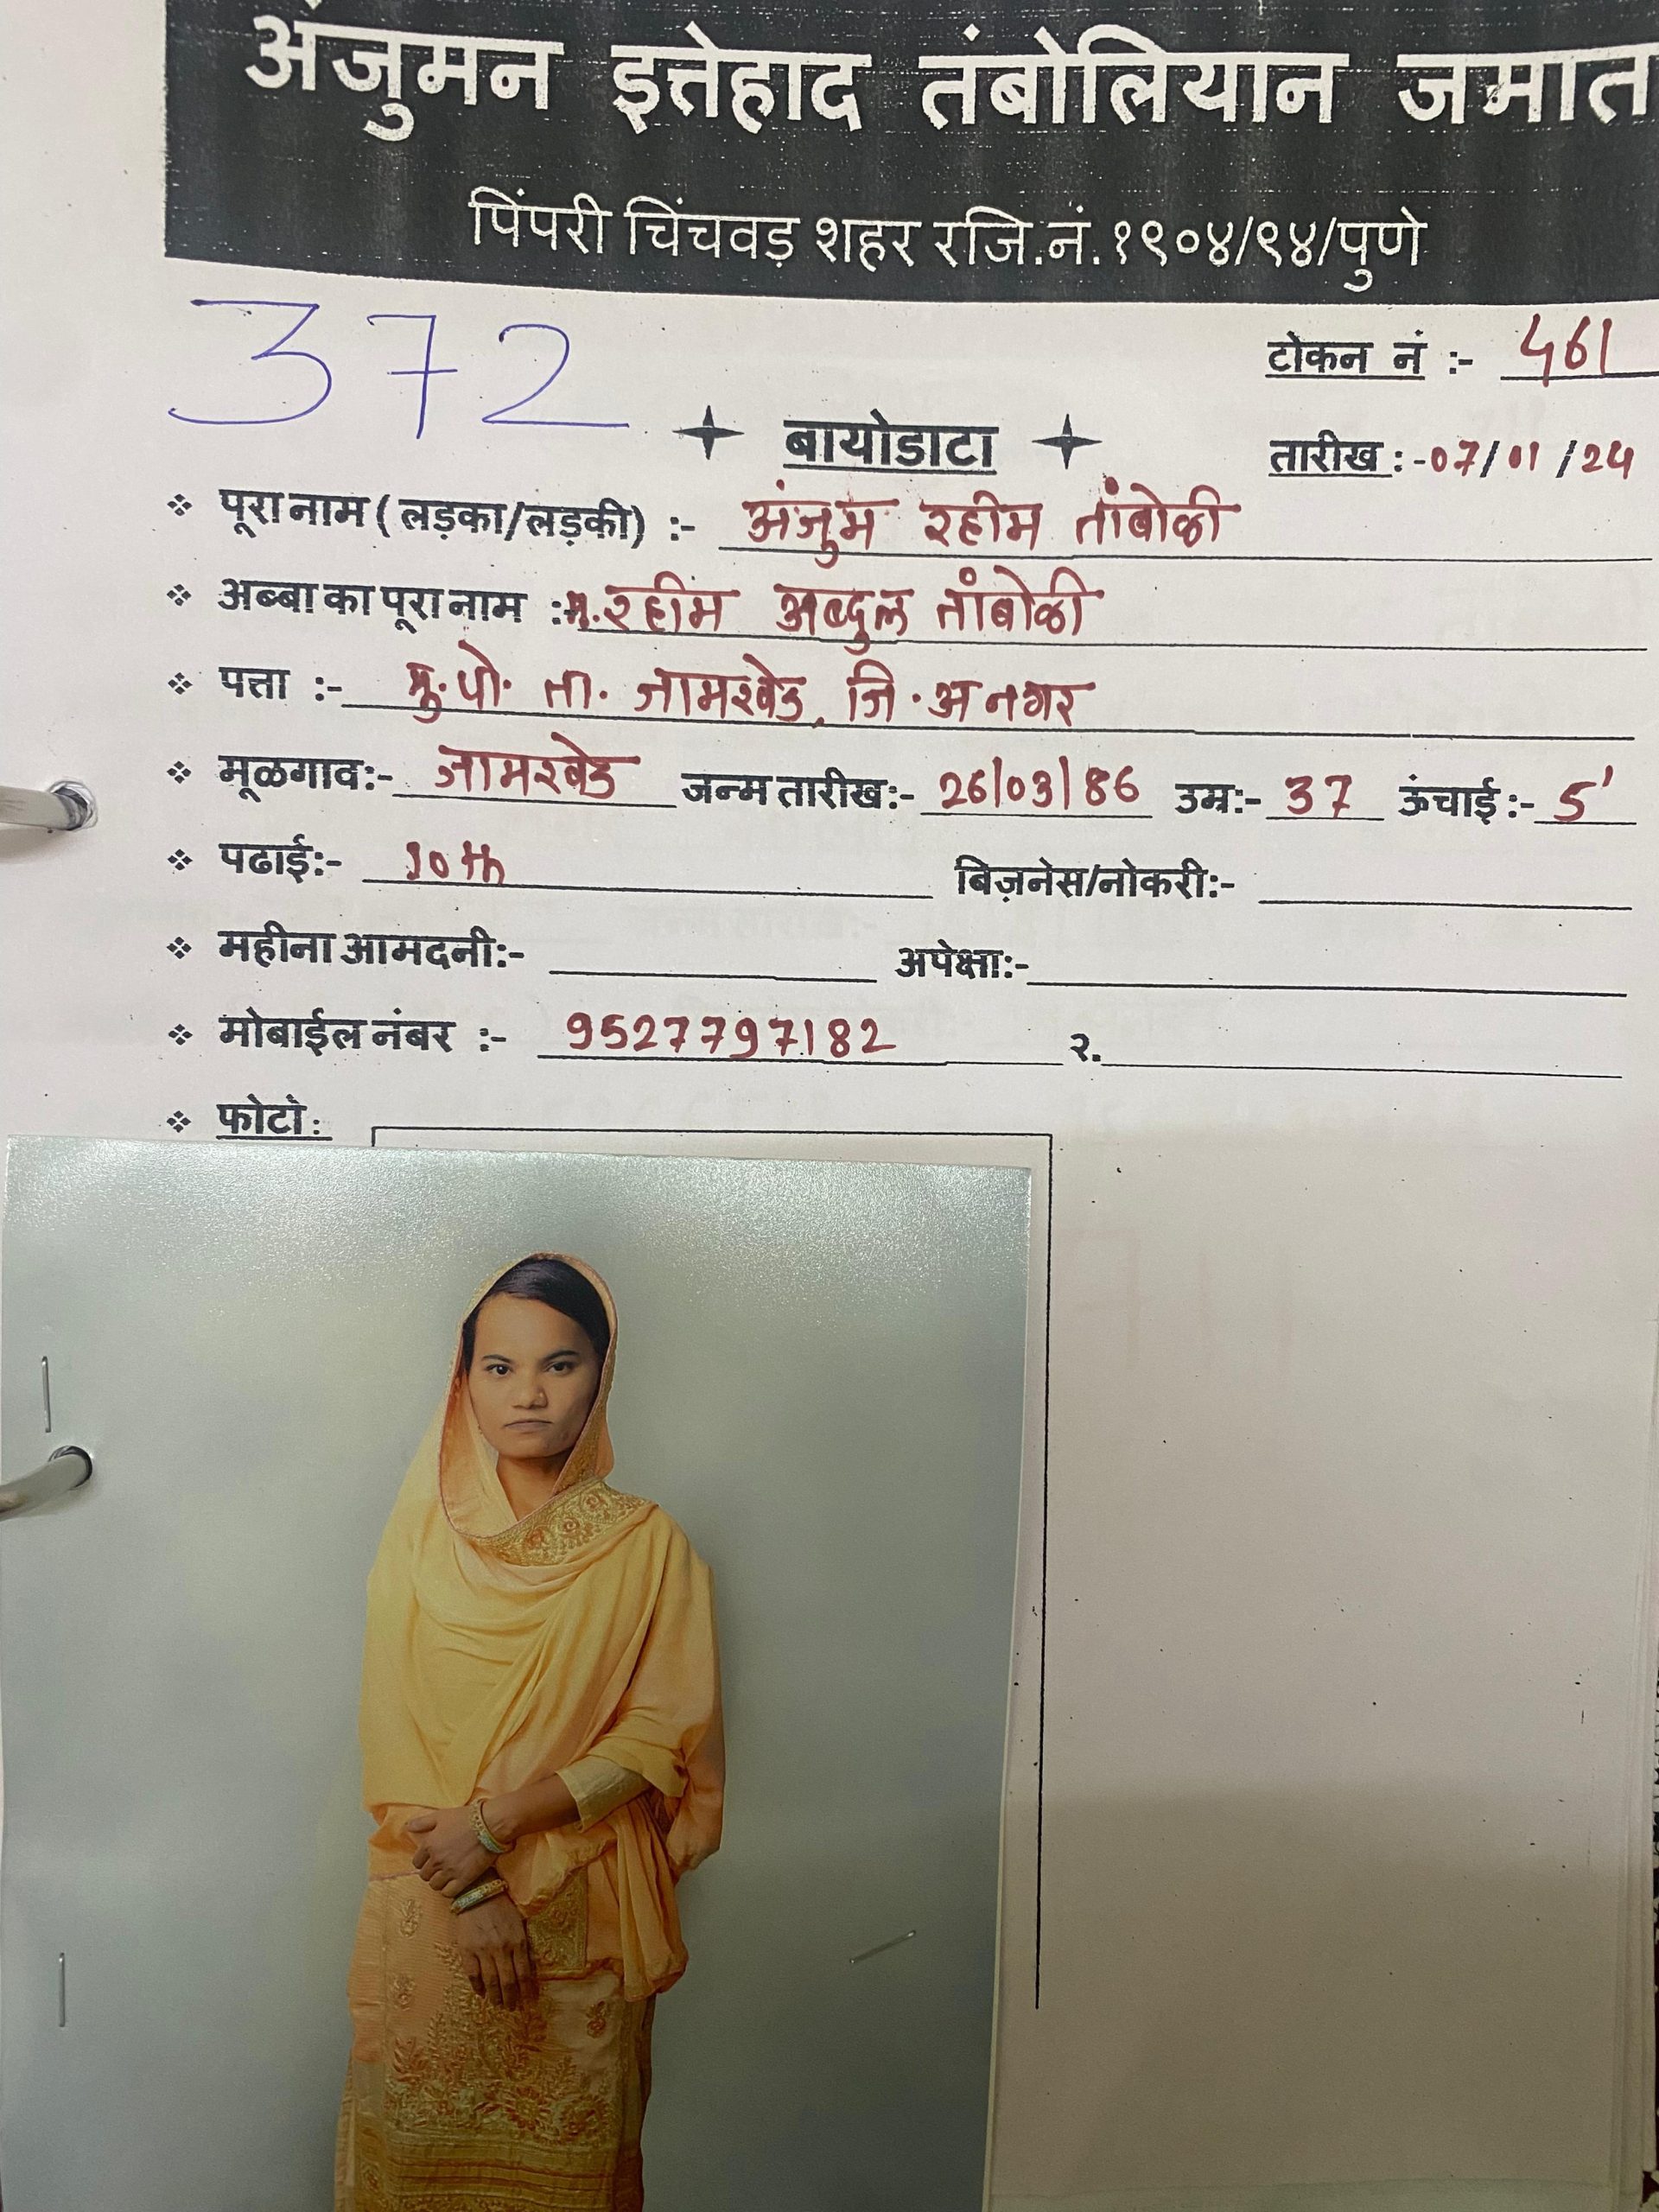 अंजुमन इत्तेहाद तंबोलियान जमात
पिंपरी चिंचवड़ शहर रजि.नं.१९०४/९४/पुणे
372
टोकन नं :- 461
बायोडाटा
तारीख :-07/01/24
पूरा नाम ( लड़का/लड़की) :- अंजुम रहीम तांबोळी
अब्बा का पूरा नाम :- रहीम अब्दुल तांबोळी
पत्ता :- मु.पो. ता. जामखेड, जि.अ नगर
मूळगाव:- जामखेड जन्म तारीख:- 26/03/86 उम्र:- 37 ऊंचाई :- 5'
पढाई:- 10th बिज़नेस/नोकरी:-
महीना आमदनी:- अपेक्षा:-
मोबाईल नंबर :- 9527797182 २.
फोटो :